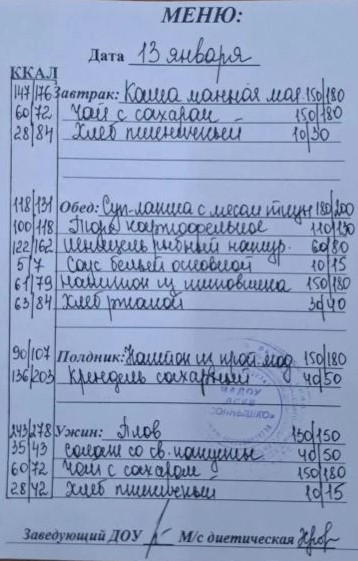 МЕНЮ:
Дата 13 января
ККАЛ
147/176 Завтрак: Каша манная мол. 150/180
60/72 Чай с сахаром 150/180
28/84 Хлеб пшеничный 10/30
118/131 Обед: Суп-лапша с мясом птицы 180/200
100/118 Пюре картофельное 110/130
122/162 Шницель рыбный натур. 60/80
5/7 Соус белый основной 10/15
61/79 Напиток из шиповника 150/180
63/84 Хлеб ржаной 30/40
90/107 Полдник: Напиток из 150/180
136/203 Крендель сахарный 40/50
243/278 Ужин: Плов 130/150
35/43 салат со св. капусты 40/50
60/72 Чай с сахаром 150/180
28/42 Хлеб пшеничный 10/15
Заведующий ДОУ М/с диетическая